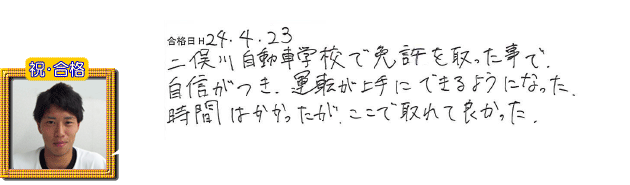 合格日H24.4.23
二俣川自動車学校で免許を取った事で、
自信がつき、運転が上手にできるようになった。
時間はかかったが、ここで取れて良かった。
祝・合格